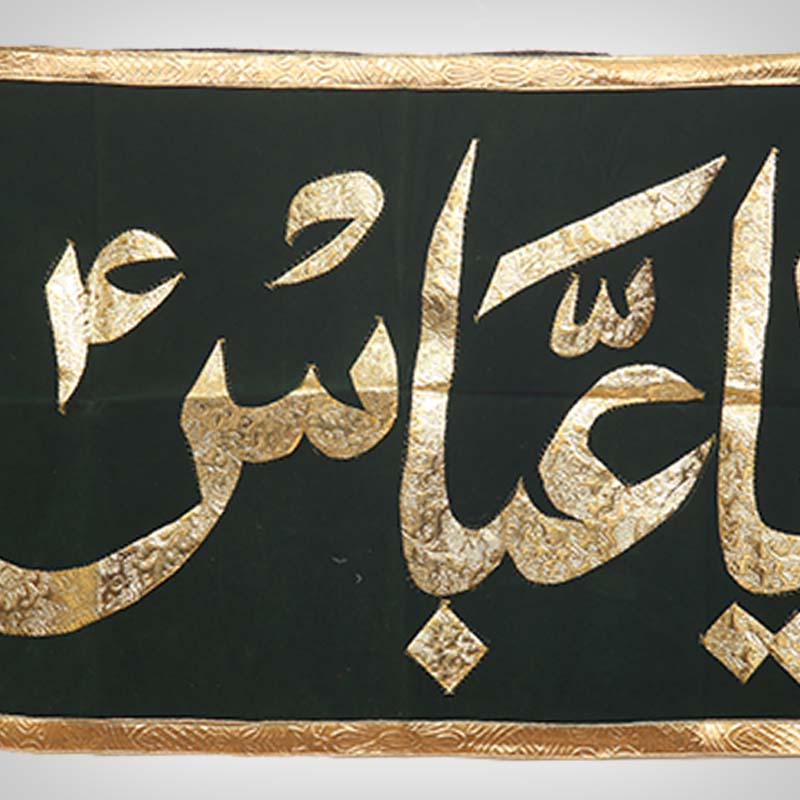 یا عَبّاسُ ع